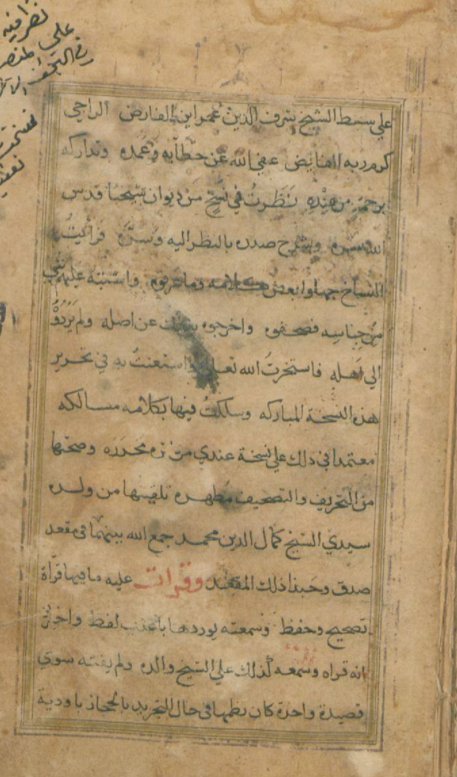 نظر فيه
علي
علي سبط الشيخ شرف الدين عمر ابن الفارض الراجي
كرم ربه الفايض عفى الله عن خطآيه وعمده وتداركه
برحمة من عنده نظرت في نسخ من ديوان شيخنا قدس
الله سره وشرح صدره بالنظر اليه وسره فرايت
النساخ جهلوا بعض كلامه وما عرفوه واشتبه عليهم شي
من جناسه فصحفوه واخرجوه بذلك عن اصله ولم يردوه
الي اهله فاستخرت الله تعالي واستعنت به في تحرير
هذه النسخة المباركه وسلكت فيها بكلامه مسالكه
معتمدا في ذلك علي نسخة عندي من نزه محرره وصحتها
من التحريف والتصحيف مطهره تلقيتها من ولده
سيدي الشيخ كمال الدين محمد جمع الله بينهما في مقعد
صدق وحبذا ذلك المقعد وقرات عليه ما فيها قراة
تصحيح وحفظ وسمعته يوردها باعذب لفظ واخبرني
انه قراه وسمعه كذلك علي الشيخ والده ولم يفته سوي
قصيدة واحدة كان نظمها في حال التجريد بالحجاز باودية